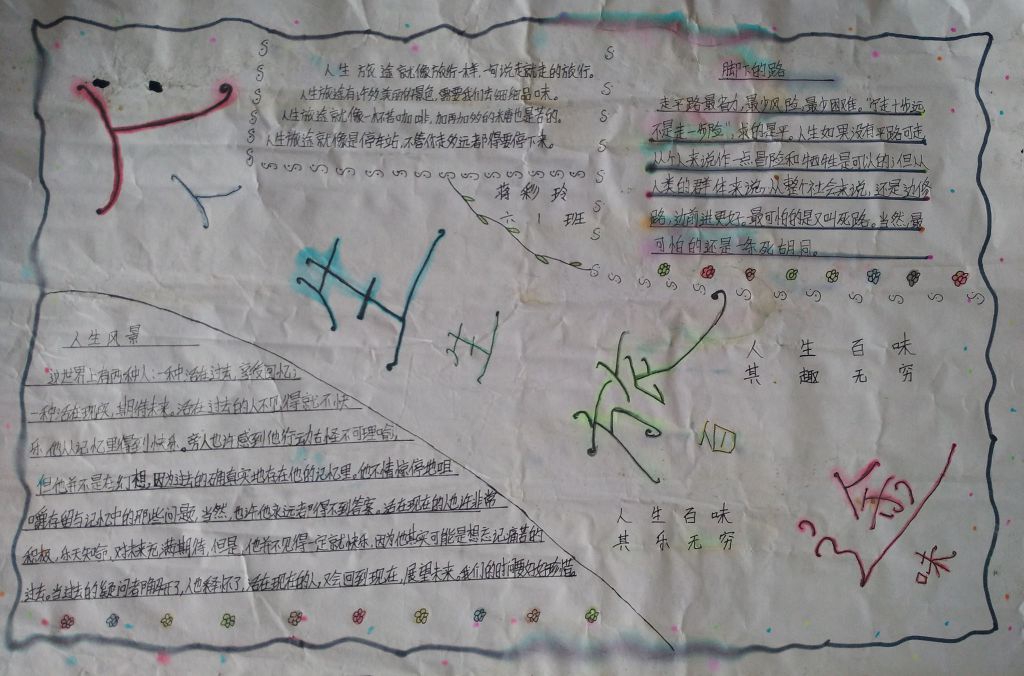 人
生
人生旅途就像旅行一样，一句说走就走的旅行。
人生旅途有许多美丽的景色，需要我们去细细品味。
人生旅途就像一杯苦咖啡，加再多的糖也是苦的。
人生旅途就像是停车站，不管你走多远都得要停下来。
蒋彩玲
六 1 班
脚下的路
走平路最省力，最少风险，最少困难。“宁走十步远
不走一步险”，求的是平。人生如果没有平路可走
从个人来说作一点冒险和牺牲是可以的；但从
人类的群体来说，从整个社会来说，还是边修
路，边前进更好。最可怕的是又叫死路。当然，最
可怕的还是一条死胡同。
人生百味
其趣无穷
人生百味
其乐无穷
味
人生风景
这世界上有两种人：一种活在过去，享受回忆；
一种活在现段，期待未来。活在过去的人不见得就不快
乐，他从记忆里得到快乐。旁人也许感到他行动古怪不可理喻，
但他并不是在幻想，因为过去的确真实地存在他的记忆里。他不情愿停地咀
嚼存留与记忆中的那些问题，当然，也许他永远都得不到答案。活在现在的人也许非常
积极，乐天知命，对未来充满期待，但是，他并不见得一定就快乐，因为他其实可能是想忘记痛苦的
过去。当过去的疑问者都解开了，人也释怀了，活在现在的人，又会回到现在，展望未来。我们的时